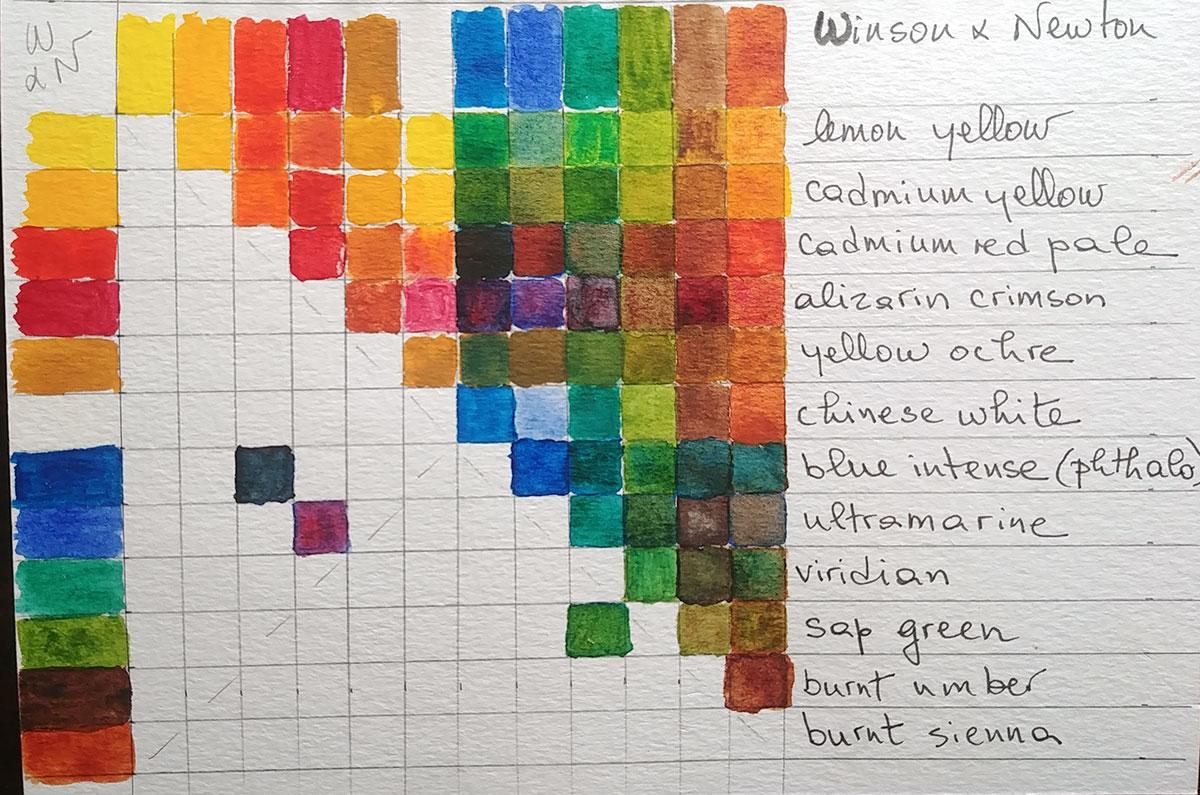 W
& N
Winson & Newton
lemon yellow
cadmium yellow
cadmium red pale
alizarin crimson
yellow ochre
chinese white
blue intense (phthalo)
ultramarine
viridian
sap green
burnt umber
burnt sienna